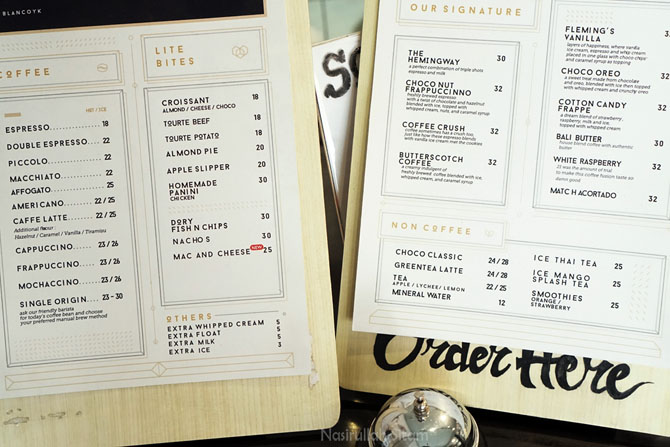 BLANCOYK
COFFEE
HOT / ICE
ESPRESSO 18
DOUBLE ESPRESSO 22
PICCOLO 22
MACCHIATO 22
AFFOGATO 25
AMERICANO 22 / 25
CAFFE LATTE 22 / 25
Additional flavour :
Hazelnut / Caramel / Vanilla / Tiramisu
CAPPUCCINO 23 / 26
FRAPPUCCINO 23 / 26
MOCHACCINO 23 / 26
SINGLE ORIGIN 23 - 30
ask our friendly barista
for today's coffee bean and choose
your preferred manual brew method
LITE
BITES
CROISSANT 18
ALMOND / CHEESE / CHOCO
TOURTE BEEF 18
TOURTE POTATO 18
ALMOND PIE 20
APPLE SLIPPER 20
HOMEMADE 30
PANINI
CHICKEN
DORY 30
FISH N CHIPS
NACHOS 30
MAC AND CHEESE NEW 25
OTHERS
EXTRA WHIPPED CREAM 5
EXTRA FLOAT 5
EXTRA MILK 5
EXTRA ICE 3
OUR SIGNATURE
THE 30
HEMINGWAY
a perfect combination of triple shots
espresso and milk
CHOCO NUT 32
FRAPPUCCINNO
freshly brewed espresso
with a twist of chocolate and hazelnut
blended with ice, topped with
whipped cream, nuts, and caramel syrup
COFFEE CRUSH 32
coffee sometimes has a crush too,
just like how these espresso blends
with vanilla ice cream met the cookies
BUTTERSCOTCH 32
COFFEE
a creamy indulgent of
freshly brewed coffee blended with ice,
whipped cream, and caramel syrup
FLEMING'S 30
VANILLA
layers of happiness, where vanilla
ice cream, espresso and whip cream
placed in one glass with choco chips
and caramel syrup as topping
CHOCO OREO 32
a sweet treat made from chocolate
and oreo, blended with ice then topped
with whipped cream and crunchy oreo
COTTON CANDY 32
FRAPPE
a dream blend of strawberry,
raspberry, milk and ice,
topped with whipped cream
BALI BUTTER 30
house blend coffee with authentic
butter
WHITE RASPBERRY 32
25 was the amount of trial
to make this coffee fusion taste so
damn good
MATCHACORTADO 32
NON COFFEE
CHOCO CLASSIC 24 / 28
GREENTEA LATTE 24 / 28
TEA 22 / 25
APPLE / LYCHEE / LEMON
MINERAL WATER 12
ICE THAI TEA 25
ICE MANGO 25
SPLASH TEA
SMOOTHIES 25
ORANGE /
STRAWBERRY
Order Here